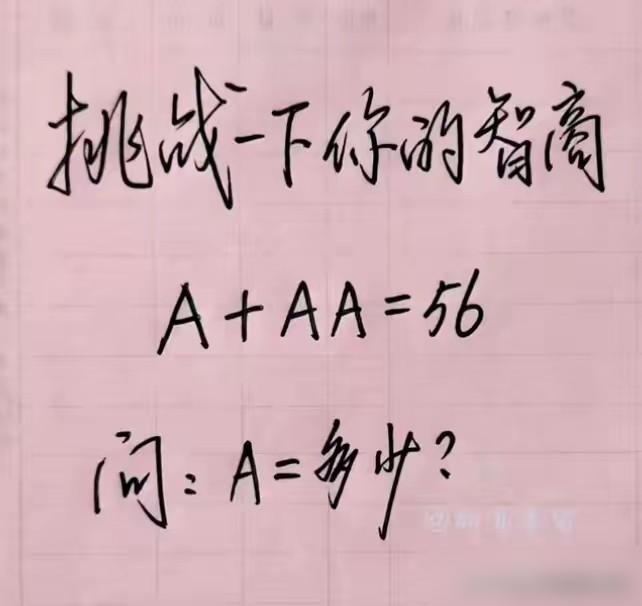 挑战一下你的智商
A+AA=56
问:A=多少?